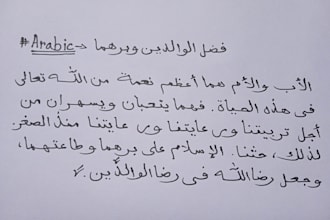 #Arabic → فضل الوالدين وبرهما
الأب والأم هما أعظم نعمة من الله تعالى
فى هذه الحياة. فهما يتعبان ويسهران من
أجل تربيتنا ورعايتنا ورعايتنا منذ الصغر
لذلك، حثنا. الإسلام على برهما وطاعتهما،
وجعل رضا الله فى رضا الوالدين.